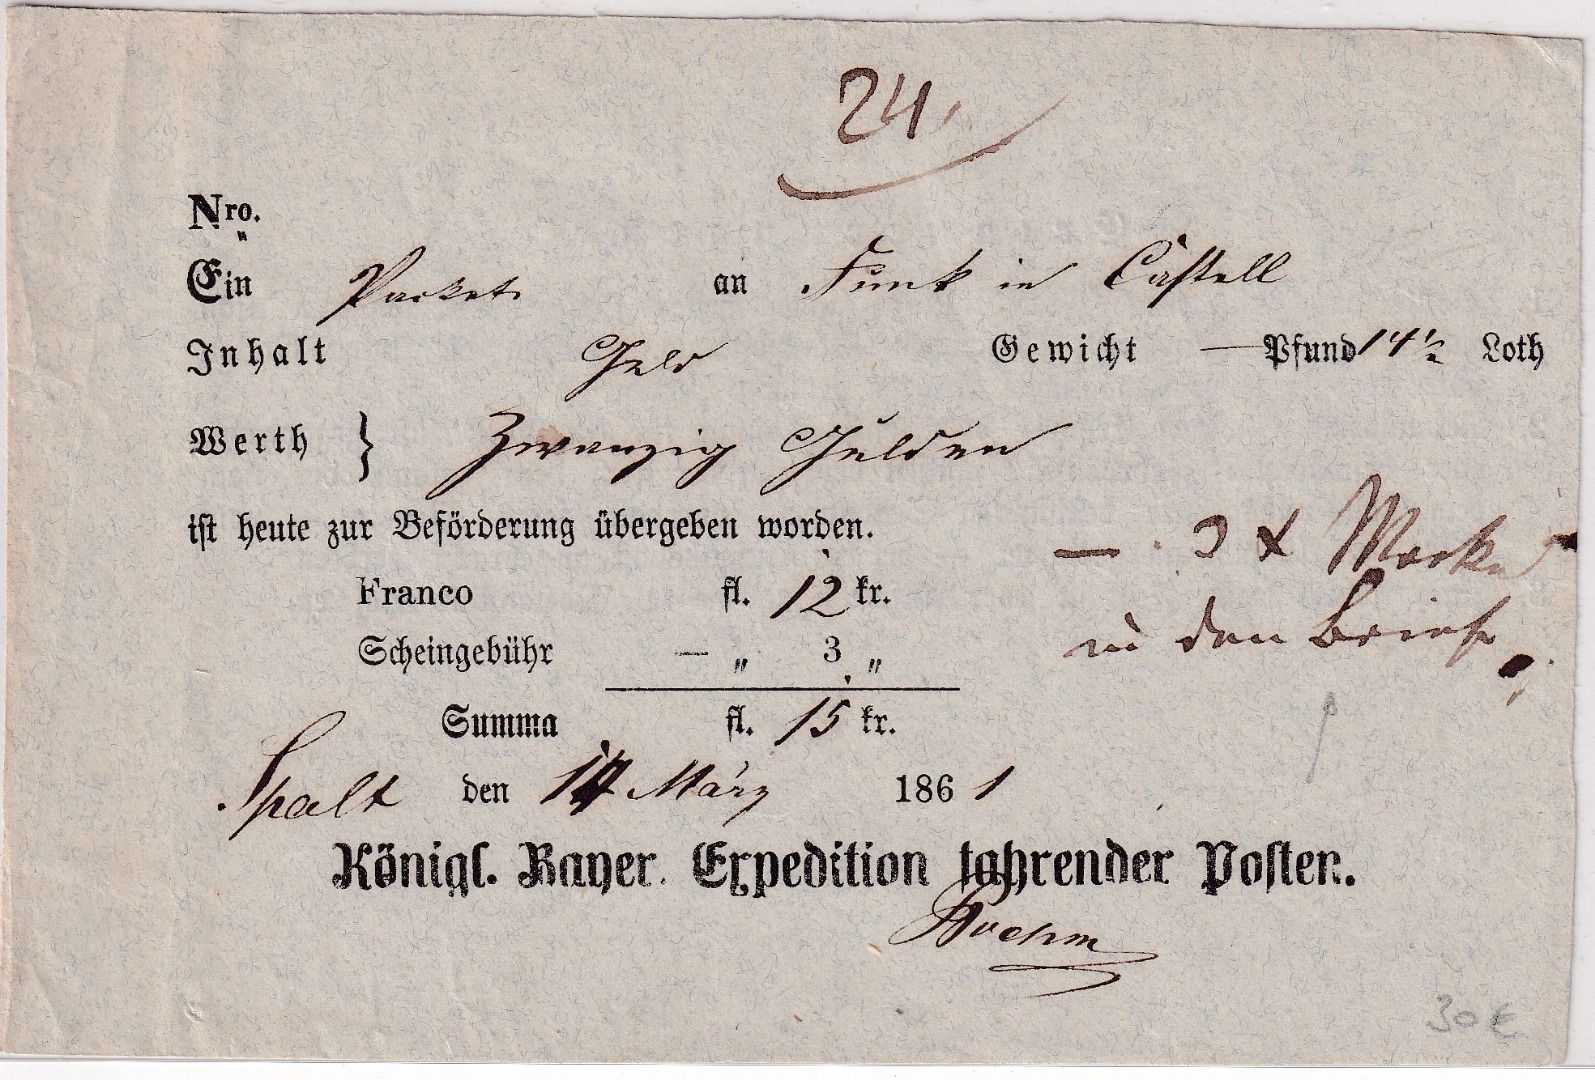 24.
Nro.
Ein Packet an Funk in Castell
Inhalt Geld Gewicht — Pfund 14 1/2 Loth
Werth } Zwanzig Gulden
ist heute zur Beförderung übergeben worden.
— 3 x Marke
Franco fl. 12 kr.
in den Brief
Scheingebühr — „ 3 „
Summa fl. 15 kr.
Spalt den März 1861
Königl. Bayer. Expedition fahrender Posten.
Boehm
30 €